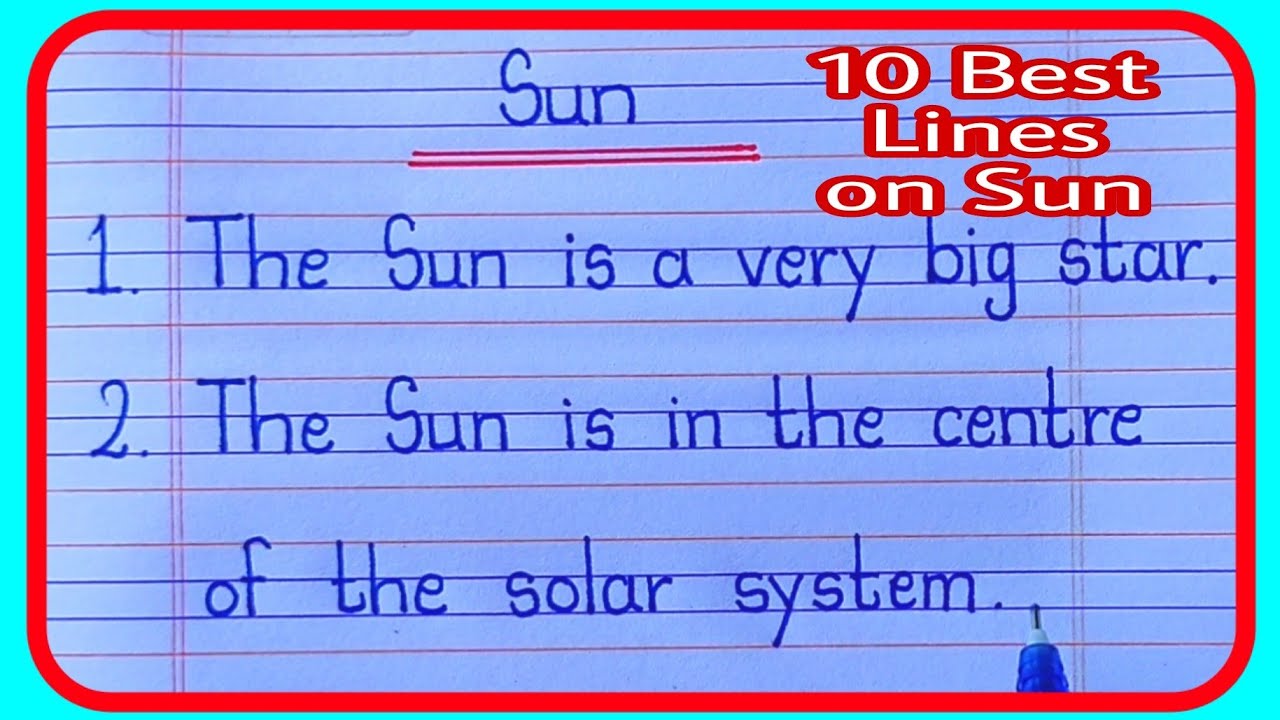 Sun
10 Best
Lines
on Sun
1. The Sun is a very big star.
2. The Sun is in the centre
of the solar system.